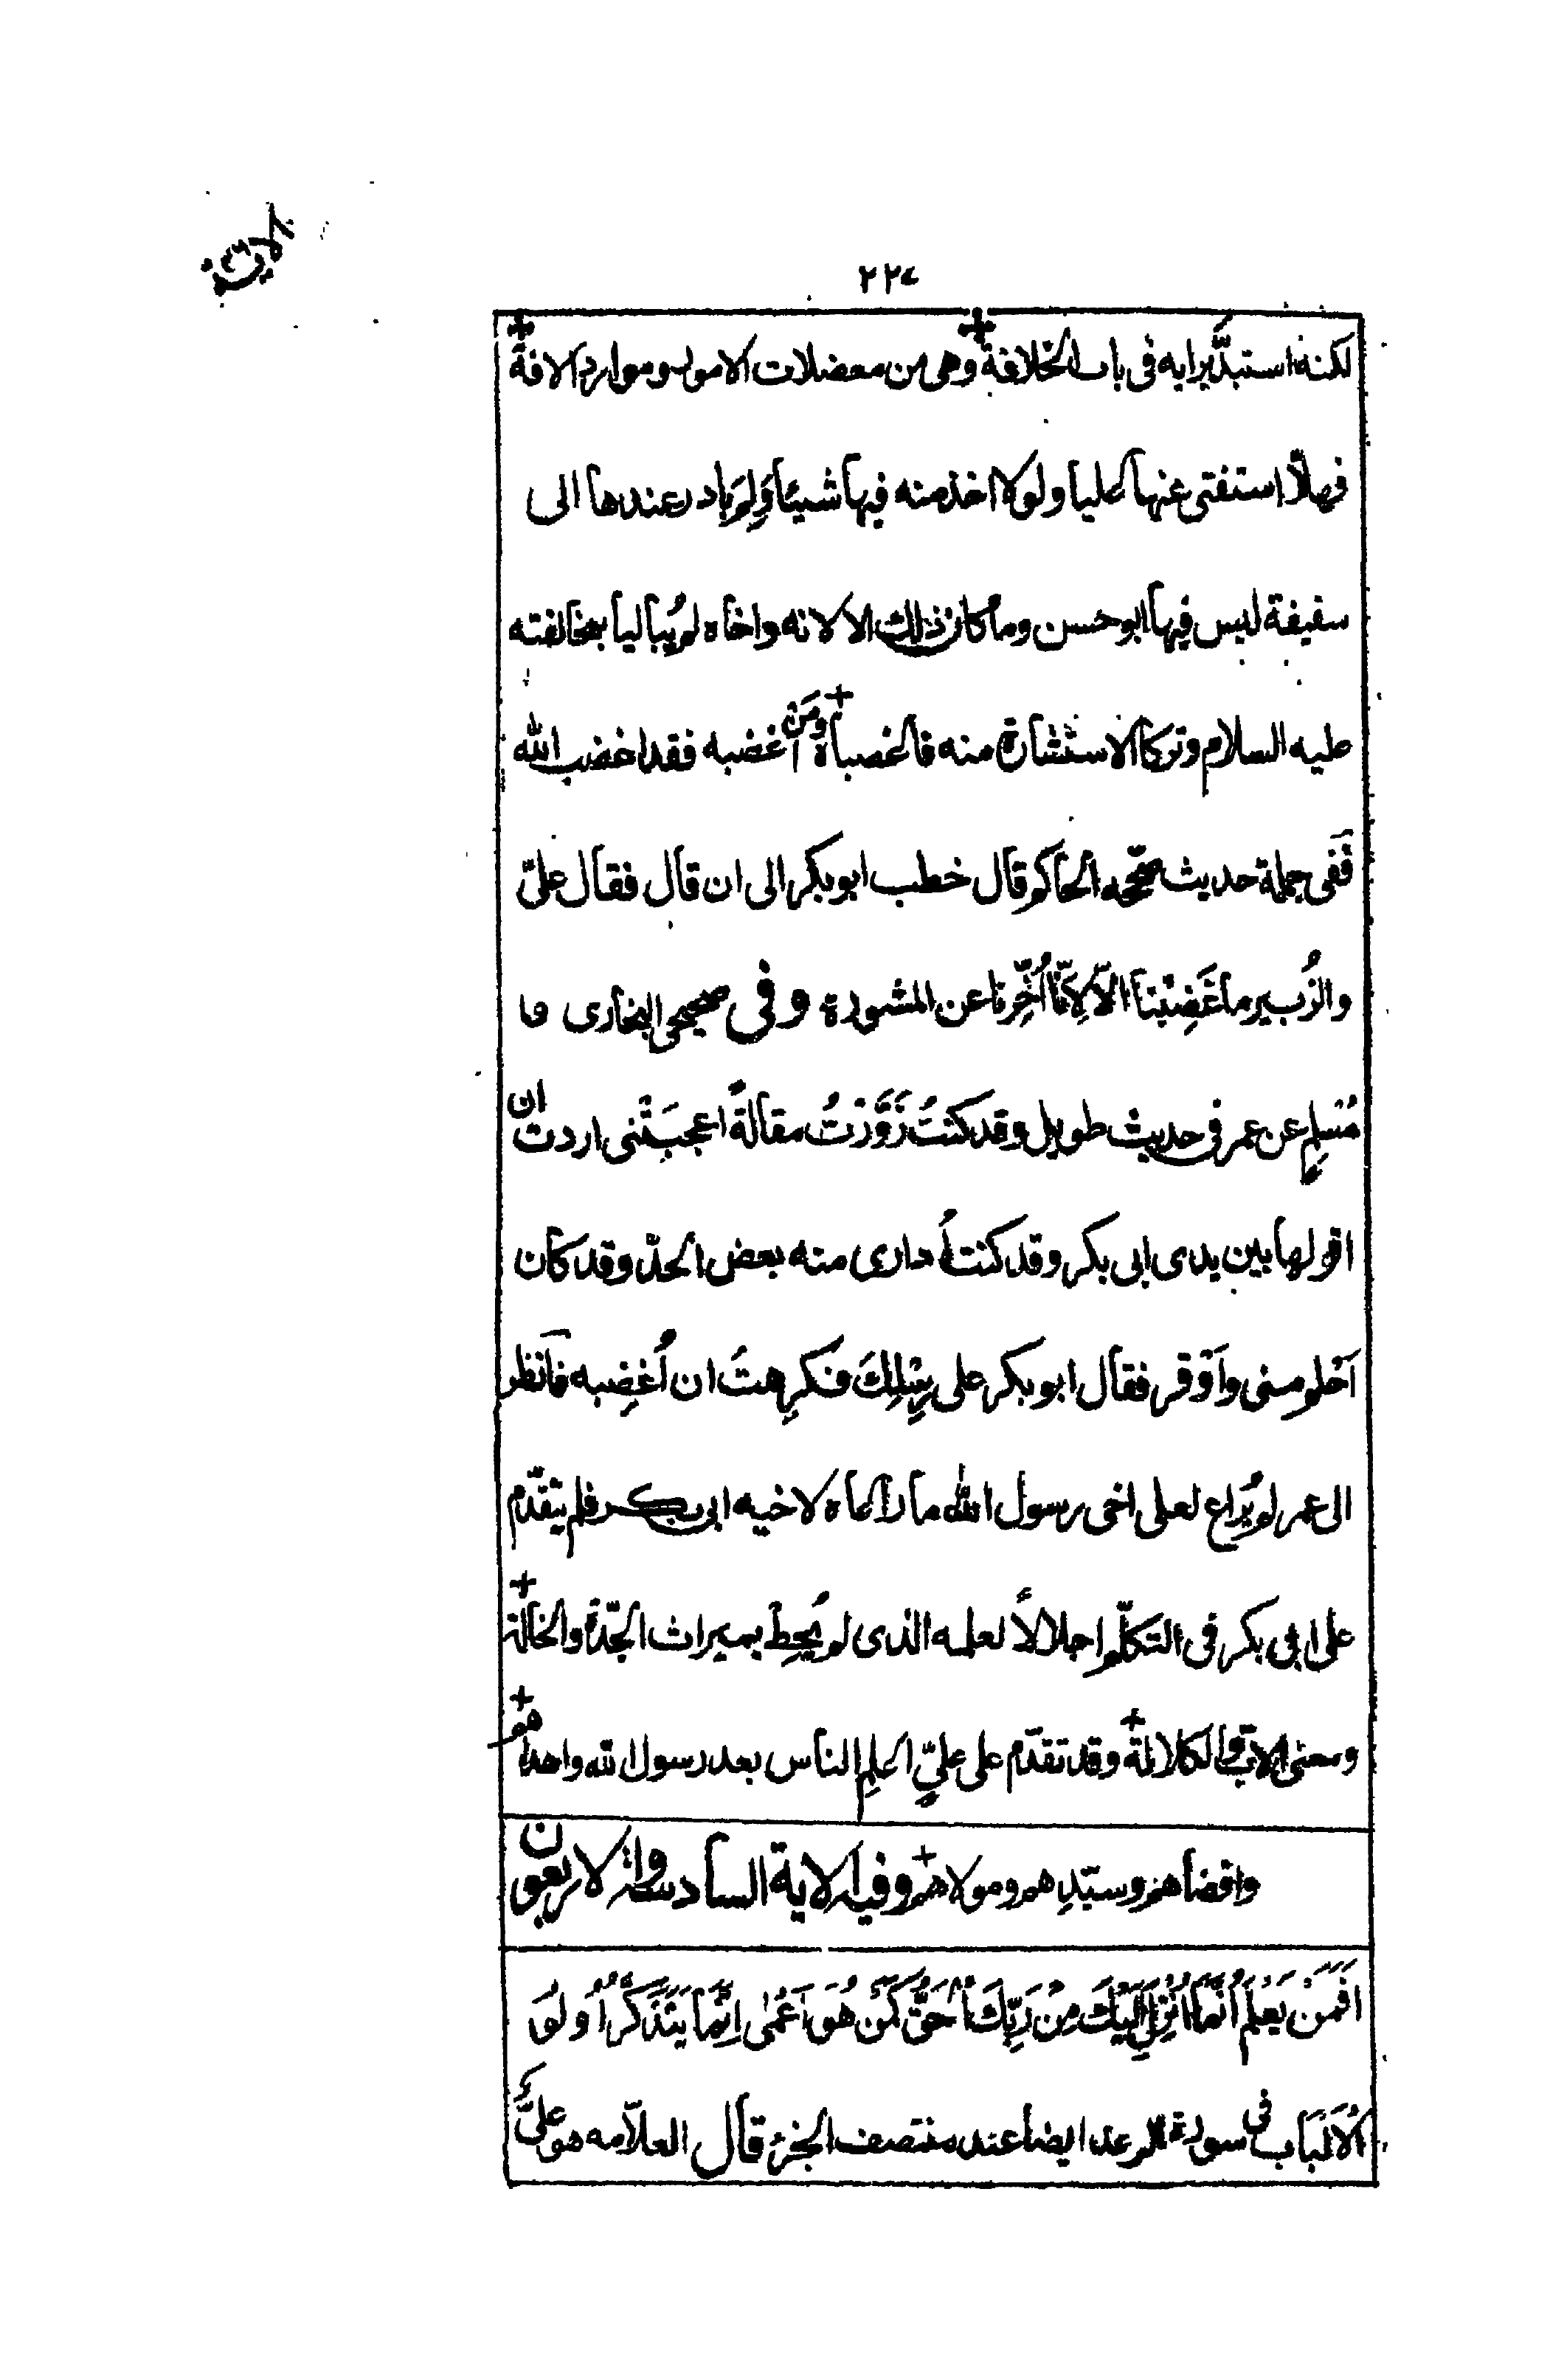 ٢٢٧
لكنه استبدّ برايه فى باب الخلافة وهى من معضلات الامور وموارد الافة
فهلّا استفتى عنها عليا ولولا اخذ منه فيها شيئا ولم بادر عندها الى
سقيفة ليس فيها ابو حسن وما كان ذلك الا لانه واخاه لم يُباليا بمخالفته
عليه السلام وتركا الاستشارة منه فاغضباه ومن اغضبه فقد اغضب الله
ففى جملة حديث صحّحه الحاكم قال خطب ابو بكر الى ان قال فقال علىّ
والزُبير ما غَضِبْنا الّا لِانّا اُخِّرنا عن المشورة وفى صحيحى البخارى و
مُسلِم عن عمر فى حديث طويل وقد كنتُ زَوَّرْتُ مقالةً اعجبَتْنى اردت ان
اقولها بين يدى ابى بكر وقد كنت اُدارى منه بعض الحدّ وقد كان
اَحْلم منى واَوْقر فقال ابو بكر على رِسْلِكَ فكرِهتُ ان اُغضِبه فانظر
الى عمر لم يُراع لعلى اخى رسول الله ما راعاه لاخيه ابى بكر فلم يتقدّم
على ابى بكر فى التكلّم اجلالاً لعلمه الذى لم يُحِط بميراث الجدّة والخالة
ومعنى الابّ والكلالة وقد تقدّم على علىٍّ اعلمِ الناس بعد رسول الله واهداهم
واقضاهم وسيّدِهم ومولاهم وفيه الاية السادسة والاربعون
اَفَمَنْ يَعْلَمُ اَنَّمَا اُنْزِلَ اِلَيْكَ مِنْ رَبِّكَ الْحَقُّ كَمَنْ هُوَ اَعْمٰى اِنَّمَا يَتَذَكَّرُ اُولُوا
الْاَلْبَابِ فى سورة الرعد ايضا عند منتصف الجزء قال العلّامه هو علىٌّ